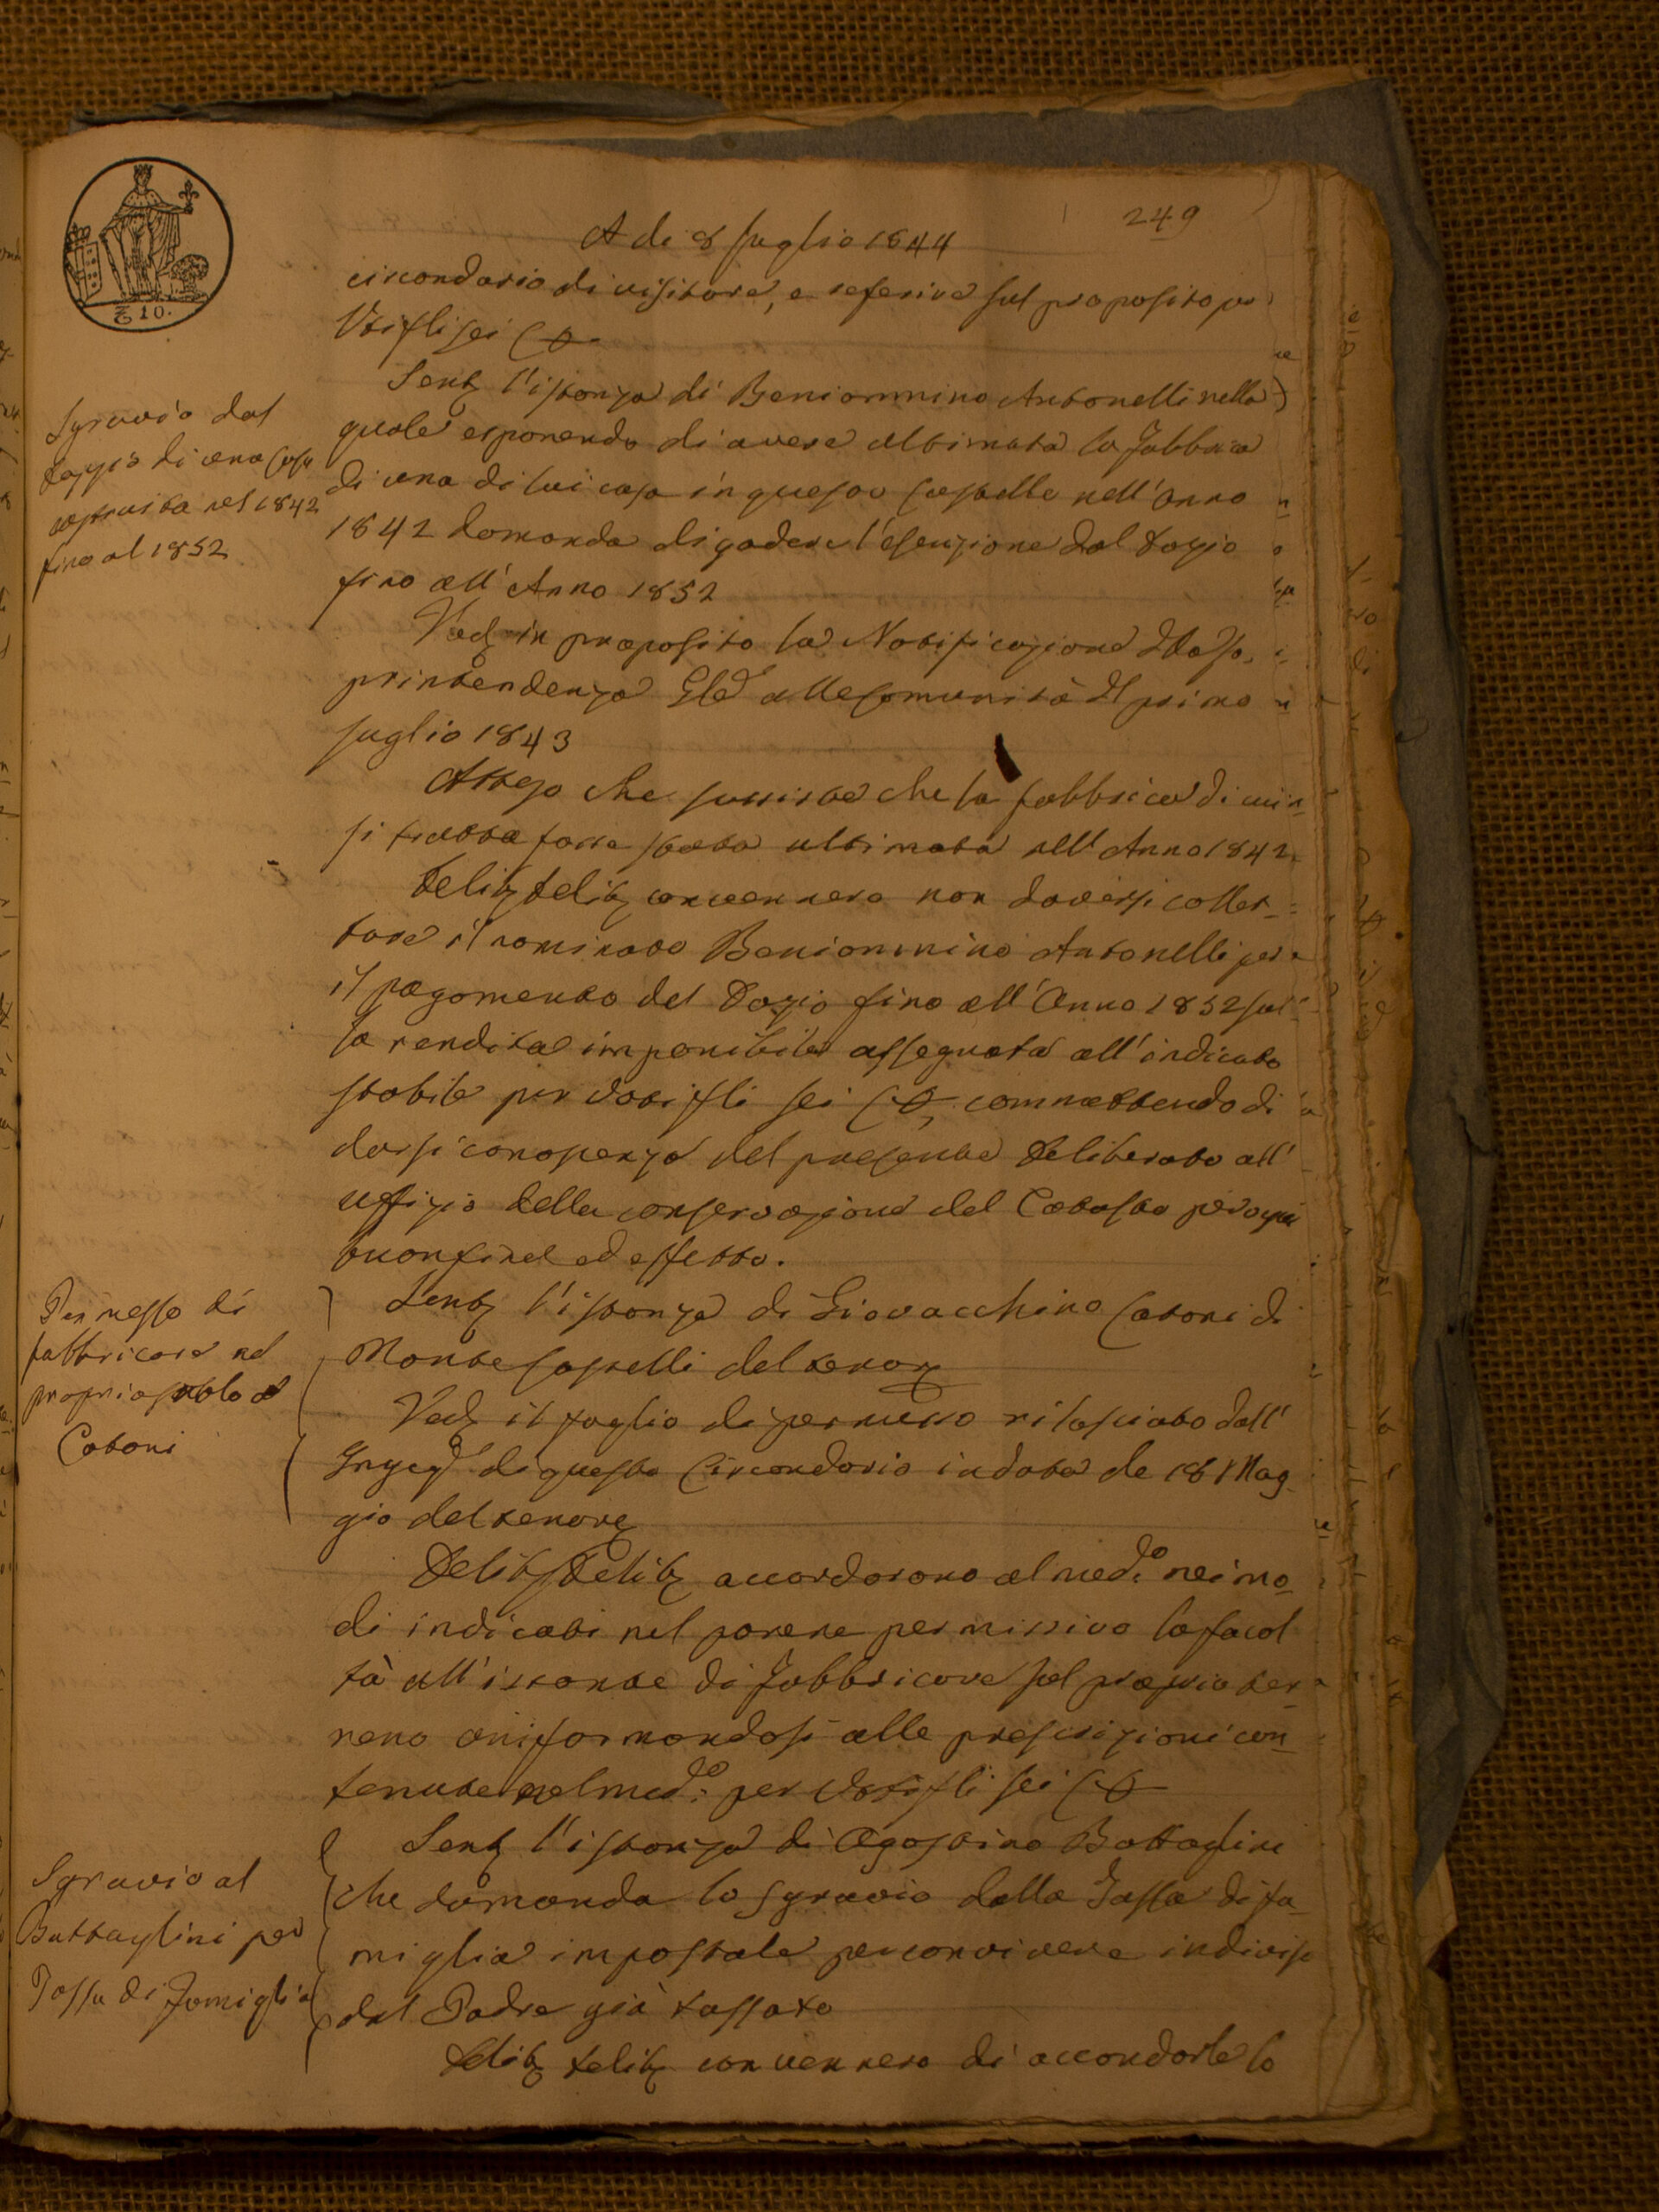 249
A di 8 Luglio 1844
circondario di visitare, e referire sul proposito per
Voti fli sei
Sentᵃ l'istanza di Beniammino Antonelli nella
quale esponendo di avere ultimata la fabbrica
di una di lui casa in questo Castello nell'Anno
1842 domanda di godere l'esenzione dal dazio
fino all'Anno 1852
Vedᵃ in proposito la Notificazione della So,
printendenza Gle alle Comunità del primo
Luglio 1843
Atteso che sussiste che la fabbrica di cui
si tratta fosse stata ultimata nell'Anno 1842
Delibᵒ Delibᵒ convennero non doversi collet=
tare il nominato Beniammino Antonelli per
il pagamento del Dazio fino all'Anno 1852 sul=
la rendita imponibile assegnata all'indicato
stabile per voti fli sei commettendo di
darsi conoscenza del presente Deliberato all'
uffizio della conservazione del Catasto per ogni
buon fine ed effetto.
Sentᵃ l'istanza di Giovacchino Catoni di
Monte Castelli del tenoʳ
Vedᵒ il foglio di permesso rilasciato dall'
Ingegʳ di questo Circondario in data de 18 Mag
gio del tenore
Delibᵒ Delibᵒ accordarono al medᵒ nei mo=
di indicati nel parere permissivo la facol
tà all'istante di fabbricare sul proprio ter=
reno uniformandosi alle prescrizioni con=
tenute nel medᵒ: per voti fli sei
Sentᵃ l'istanza di Agostino Battaglini
che domanda lo sgravio dalla Tassa di fa=
miglia impostale per convivere indiviso
dal Padre già tassato
Delibᵒ Delibᵒ convennero di accordarle lo
£ 10.
Sgravio dal
dazio di una Casa
costruita nel 1842
fino al 1852
Permesso di
fabbricare nel
proprio suolo a
Catoni
Sgravio al
Battaglini per
Tassa di famiglia